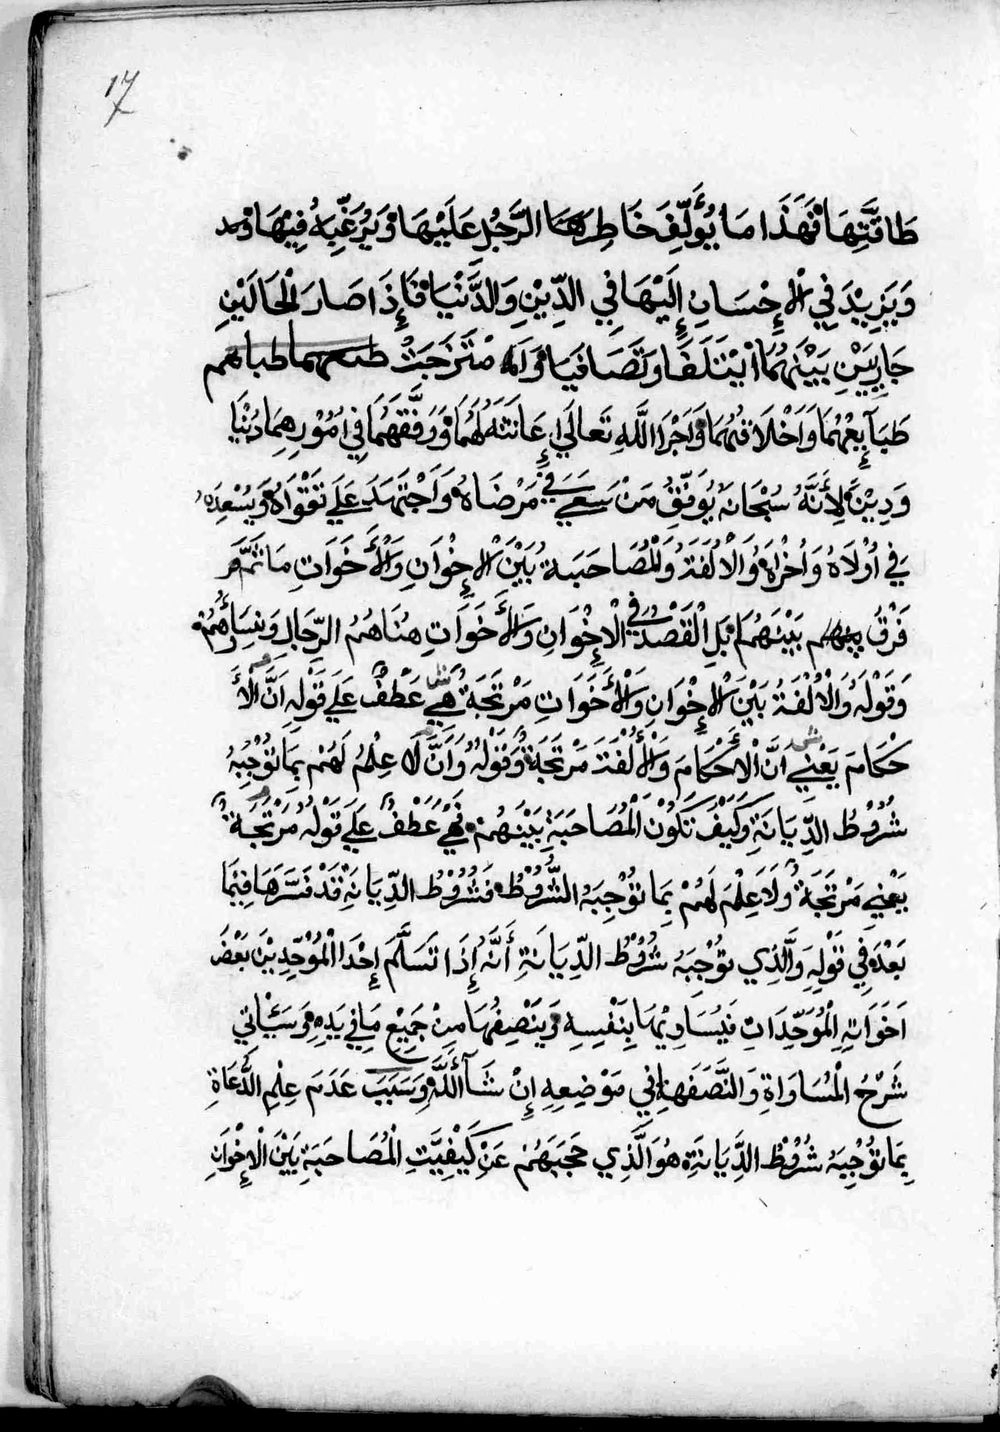 17
طَاقَتِهَا فَهَذَا مَا يُؤَلِّفَ خَاطِرَ الرَّجُلِ عَلَيْهَا وَيُرَغِّبهُ فِيْهَا
وَيَزِيْدَ فِي الْإِحْسَانِ إِلَيْهَا فِي الدِّيْنِ وَالدُّنْيَا فَإِذَا صَارَ الْحَالَيْنِ
جَارِيَيْنِ بَيْنَهُمَا ايْتَلَفَا وَتَصَافَيَا وَامْتَزَجَتْ
طَبَايِعُهُمَا وَاَخْلَاقُهُمَا وَاَجْرَا اللَّهِ تَعالَى إِعَانَتَهُ لَهُمَا وَرَفَّقَهُمَا فِي اُمُوْرِهِمَا دُنْيَا
وَدِيْنً لِأَنَّهُ سُبْحَانَهُ يُوَفِّقُ مَنْ سَعِيَ فِي مَرْضَاهُ وَاَجْتَهَدَ عَلَي تَقْوَاهُ وَيُسْعِدَهُ
فِي اُوْلَاهُ وَاُخْرَاهُ وَالْاُلْفَةُ وَالْمُصَاحَبَةُ بَيْنَ الْإِخْوَانِ وَالْأَخَوَاتِ مَا تَمَّ
فَرْقُ بَيْنَهُمَا بَلِ الْقَصْدُ فِي الْإِخْوَانِ وَالْأَخَوَاتِ هُنَا هُمُ الرِّجَالِ وَنِسَاؤُهُمْ
وَقَوْلَهُ وَالْاُلْفَةُ بَيْنَ الْإِخْوَانِ وَالْأَخَوَاتِ مَرْتَجَةٌ هِيَ عَطْفٌ عَلَي قَوْلِهِ اَنَّ الْأَ
حْكَامَ يَعْنِي اَنَّ الْأَحْكَامَ وَالْأُلْفَتَ مَرْتَجَةٌ وَقَوْلُهُ وَاَنَّ لَا عِلْمُ لَهُمْ بِمَا تُوْجِبُهُ
شُرُوْطُ الدِّيَانَةِ وَكَيْفَ تَكُوْنَ الْمُصَاحَبَةِ بَيْنَهُمْ فَهِيَ عَطْفٌ عَلَي قَوْلِهِ مَرْتَجَةٌ
يَعْنِي مَرْتَجَةٌ وَلَا عِلْمَ لَهُمْ بِمَا تُوْجِبَهُ الشُّرُوْطُ فَشُرُوْطُ الدِّيَانَةِ قَدْ فَسَّرَهَا فِيْمَا
بَعْدَهُ فِي قَوْلِهِ وَالَّذِي تُوْجِبَهُ شُرُوْطُ الدِّيَانَةِ أَنَّهُ إِذَا تَسَلَّمَ إِحْدَا الْمُوْحِّدِيْنَ بَعْضَ
اَخَوَاتِهِ الْمُوَحِّدَاتِ فَيُسَاوِيْهَا بِنَفْسِهِ وَيَنْصِفُهَا مِنْ جَمِيْعِ مَا فِي يَدِهِ وَسَيَاْتِي
شَرْحُ الْمُسَاوَاةِ وَالنَّصَفَهِ فِي مَوْضِعِهِ إِنْ شَآءَ اللَّهُ وَسَبَبَ عَدَمَ عِلْمِ الدُّعَاةِ
بِمَا تُوْجِبُهُ شُرُوْطُ الدِّيَانَةِ هُوَ الَّذِي حَجَبَهُمْ عَنْ كَيْفِيَّتِ الْمُصَاحَبَةِ بَيْنَ الْإِخْوَانِ